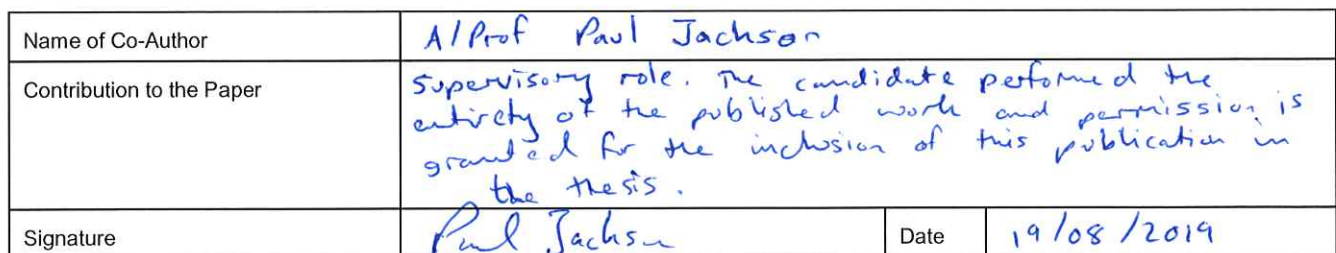 Name of Co-Author A/Prof Paul Jackson
Contribution to the Paper Supervisory role. The candidate performed the
entirety of the published work and permission is
granted for the inclusion of this publication in
the thesis.
Signature Paul Jackson Date 19/08/2019